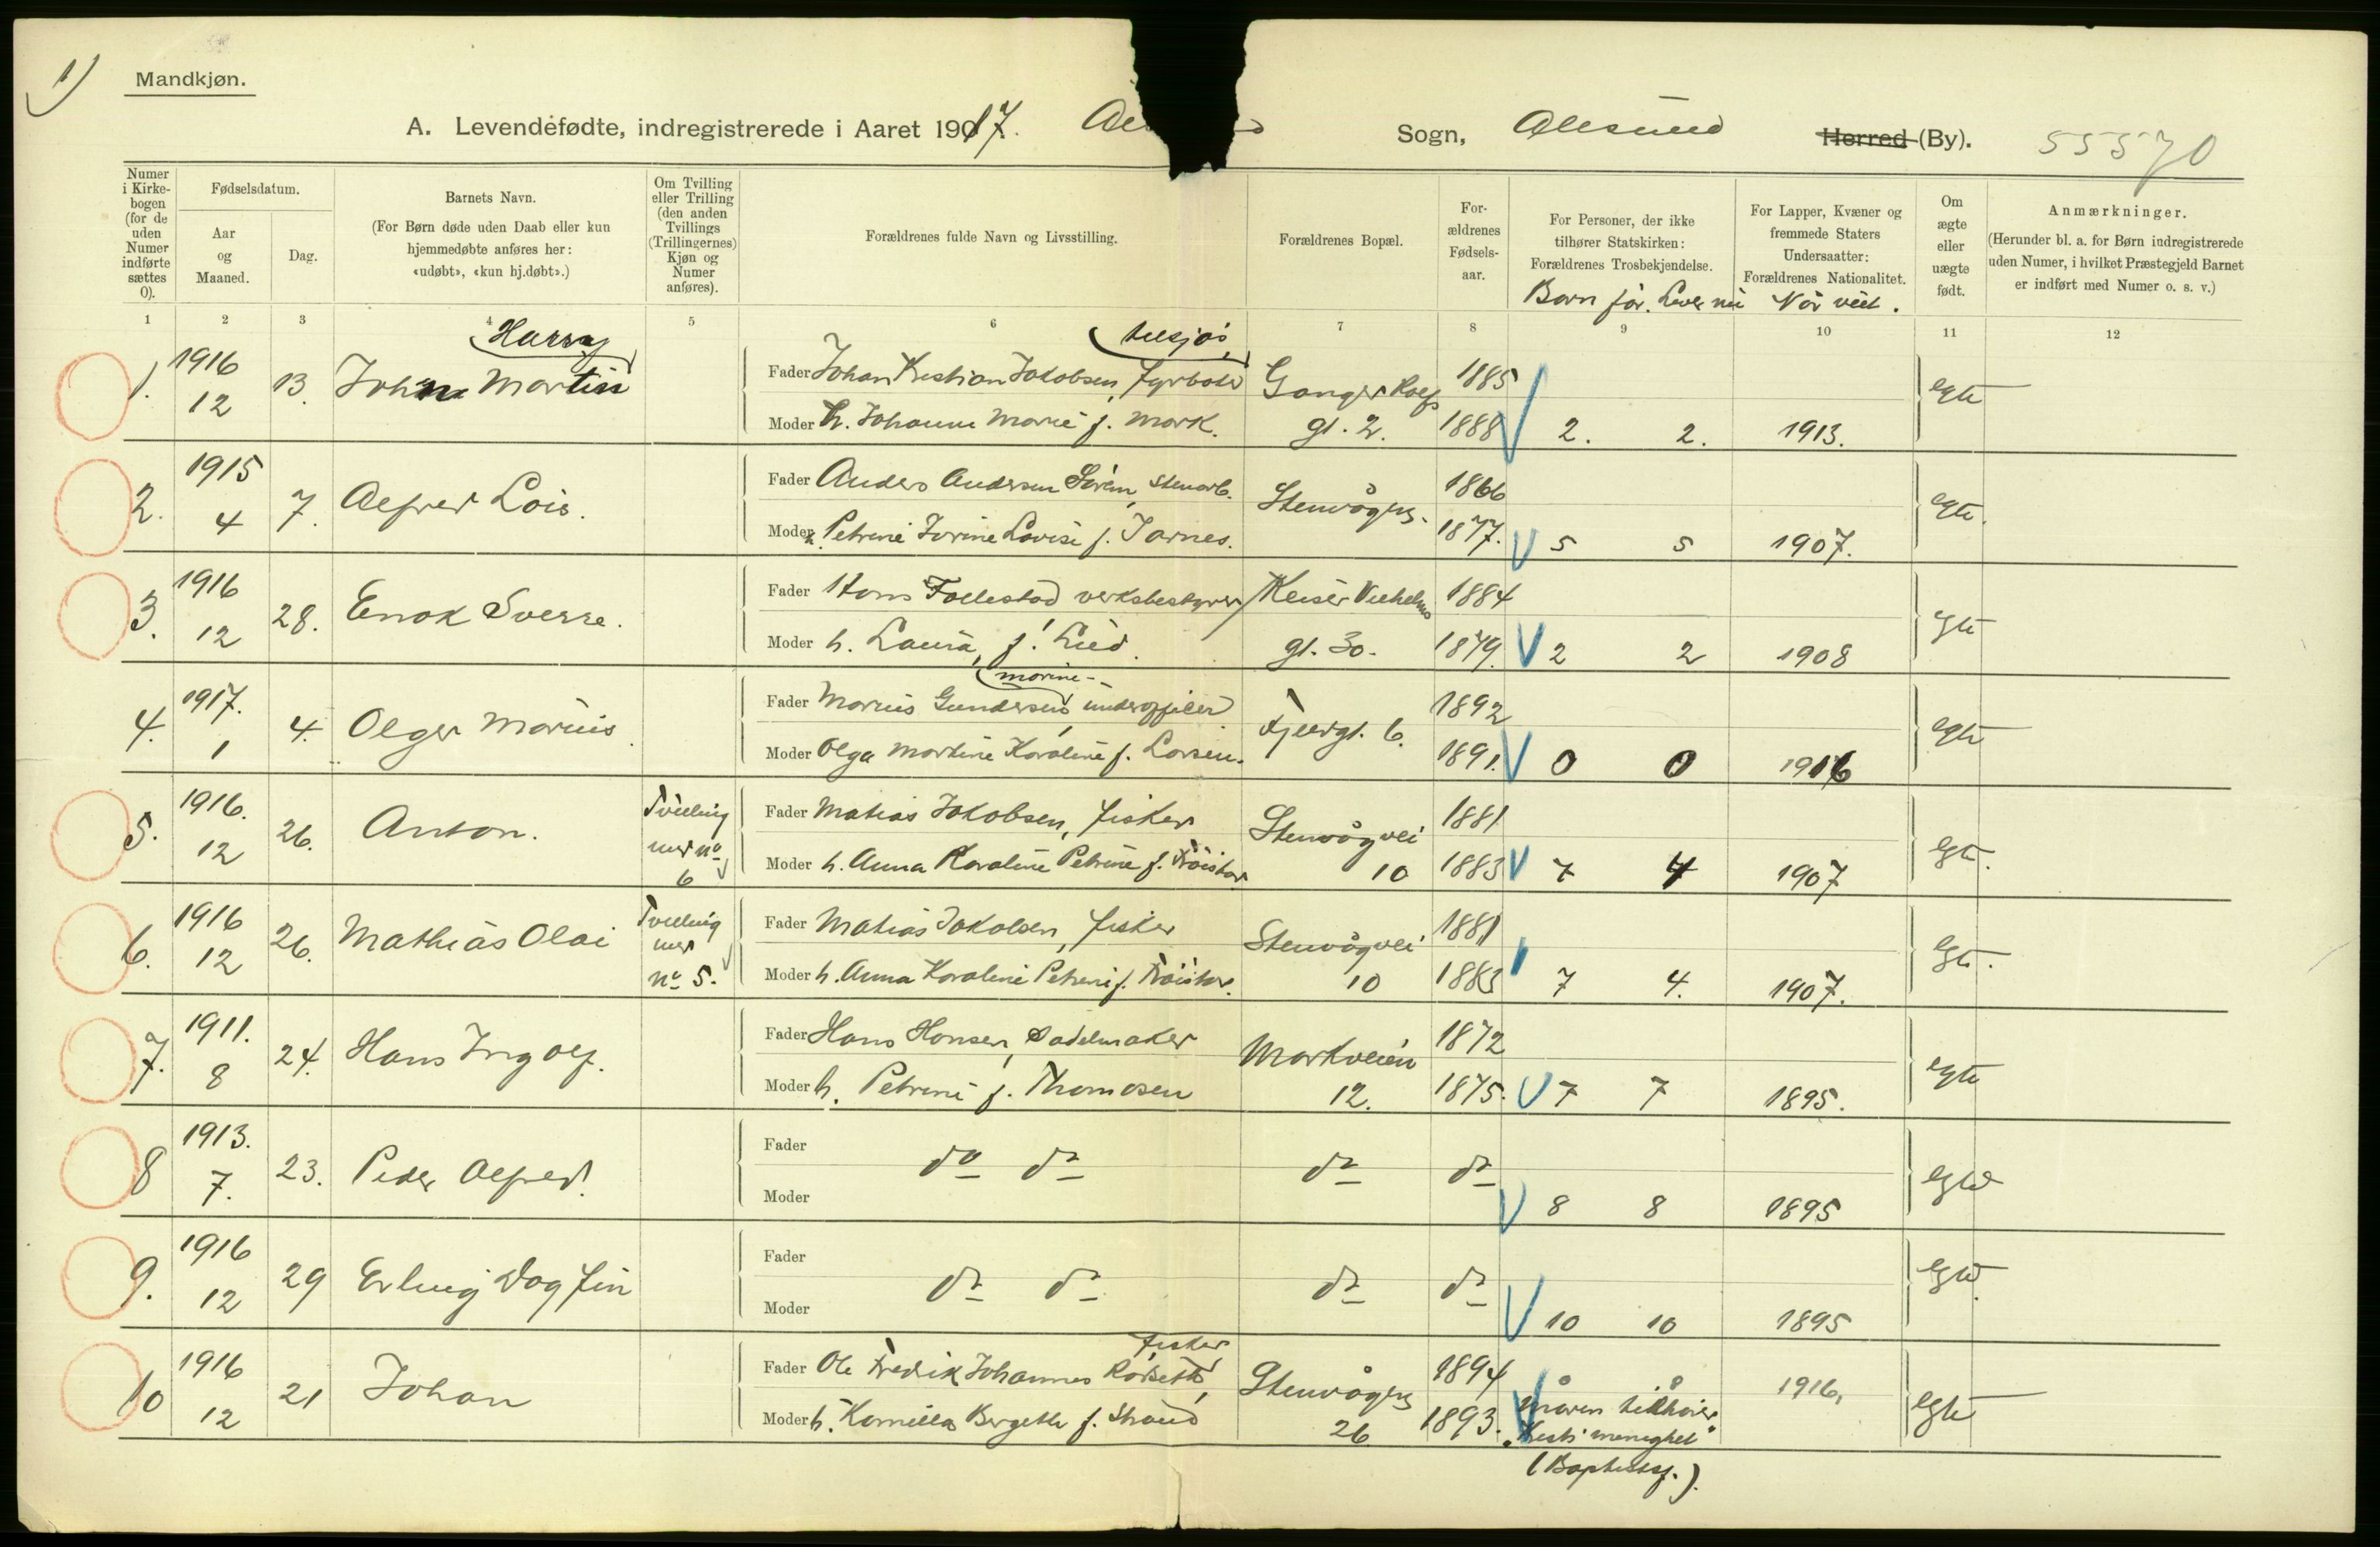 1)
Mandkjøn.
A. Levendefødte, indregistrerede i Aaret 1917. Sogn, Alesund Herred (By). 55570
Numer i Kirkebogen (for de uden Numer indførte sættes 0).
Fødselsdatum.
Aar og Maaned.
Dag.
Barnets Navn.
(For Børn døde uden Daab eller kun hjemmedøbte anføres her: «udøbt», «kun hj.døbt».)
Om Tvilling eller Trilling (den anden Tvillings (Trillingernes) Kjøn og Numer anføres).
Forældrenes fulde Navn og Livsstilling.
Forældrenes Bopæl.
Forældrenes Fødselsaar.
For Personer, der ikke tilhører Statskirken: Forældrenes Trosbekjendelse.
Born før. Lever nu
For Lapper, Kvæner og fremmede Staters Undersaatter: Forældrenes Nationalitet.
Når viet.
Om ægte eller uægte født.
Anmærkninger.
(Herunder bl. a. for Børn indregistrerede uden Numer, i hvilket Præstegjeld Barnet er indført med Numer o. s. v.)
1 2 3 4 5 6 7 8 9 10 11 12
1. 1916 12 13. Harry Johan Martin
Fader Johan Kristian Jakobsen, fyrbøter tilsjøs, Ganger Rolfs 1885
Moder h. Johanne Marie f. Mork. gt. 2. 1888 2. 2. 1913. egte
2. 1915 4 7. Alfred Lois.
Fader Anders Andersen Stenarb. Stenvågvg. 1866
Moder h. Petrine Jorine Lovise f. Jarnes. 1877. 5 5 1907. egte.
3. 1916 12 28. Enok Sverre.
Fader Hans Follestad verksbestyrer Keiser Vilhelms 1884
Moder h. Laura, f. Lied. gt. 30. 1879. 2 2 1908 egte
4. 1917. 1 4. Olger Marius.
Fader Marius Gundersen, marine-underofficer Fjeldgt. 6. 1892
Moder Olga Martine Karoline f. Larsen. 1891. 0 0 1916 egte
5. 1916. 12 26. Anton. Tvilling med no 6
Fader Matias Jakobsen, fisker Stenvågvei 1881
Moder h. Anna Karoline Petrine f. 10 1883 7 4 1907 egte.
6. 1916 12 26. Mathias Olai Tvilling med no 5.
Fader Matias Jakobsen, fisker Stenvågvei 1881
Moder h. Anna Karoline Petrine f. 10 1883 7 4. 1907. egte.
7. 1911. 8 24. Hans Ingolf.
Fader Hans Hansen, Sadelmaker Markveien 1872
Moder h. Petrine f. Thomasen 12. 1875. 7 7 1895. egte
8 1913. 7. 23. Peder Alfred.
Fader do do do do
Moder 8 8 1895 egte
9. 1916 12 29 Erling Dagfin
Fader do do do do
Moder 10 10 1895 egte.
10 1916 12 21 Johan
Fader Ole Fredrik Johannes Rørseth, fisker Stenvågvg 1894
Moder h. Kornillia Bergethe f. Strand 26 1893. Moren tilhører 1916, egte
"Kristi menighet"
(Baptistsf.).